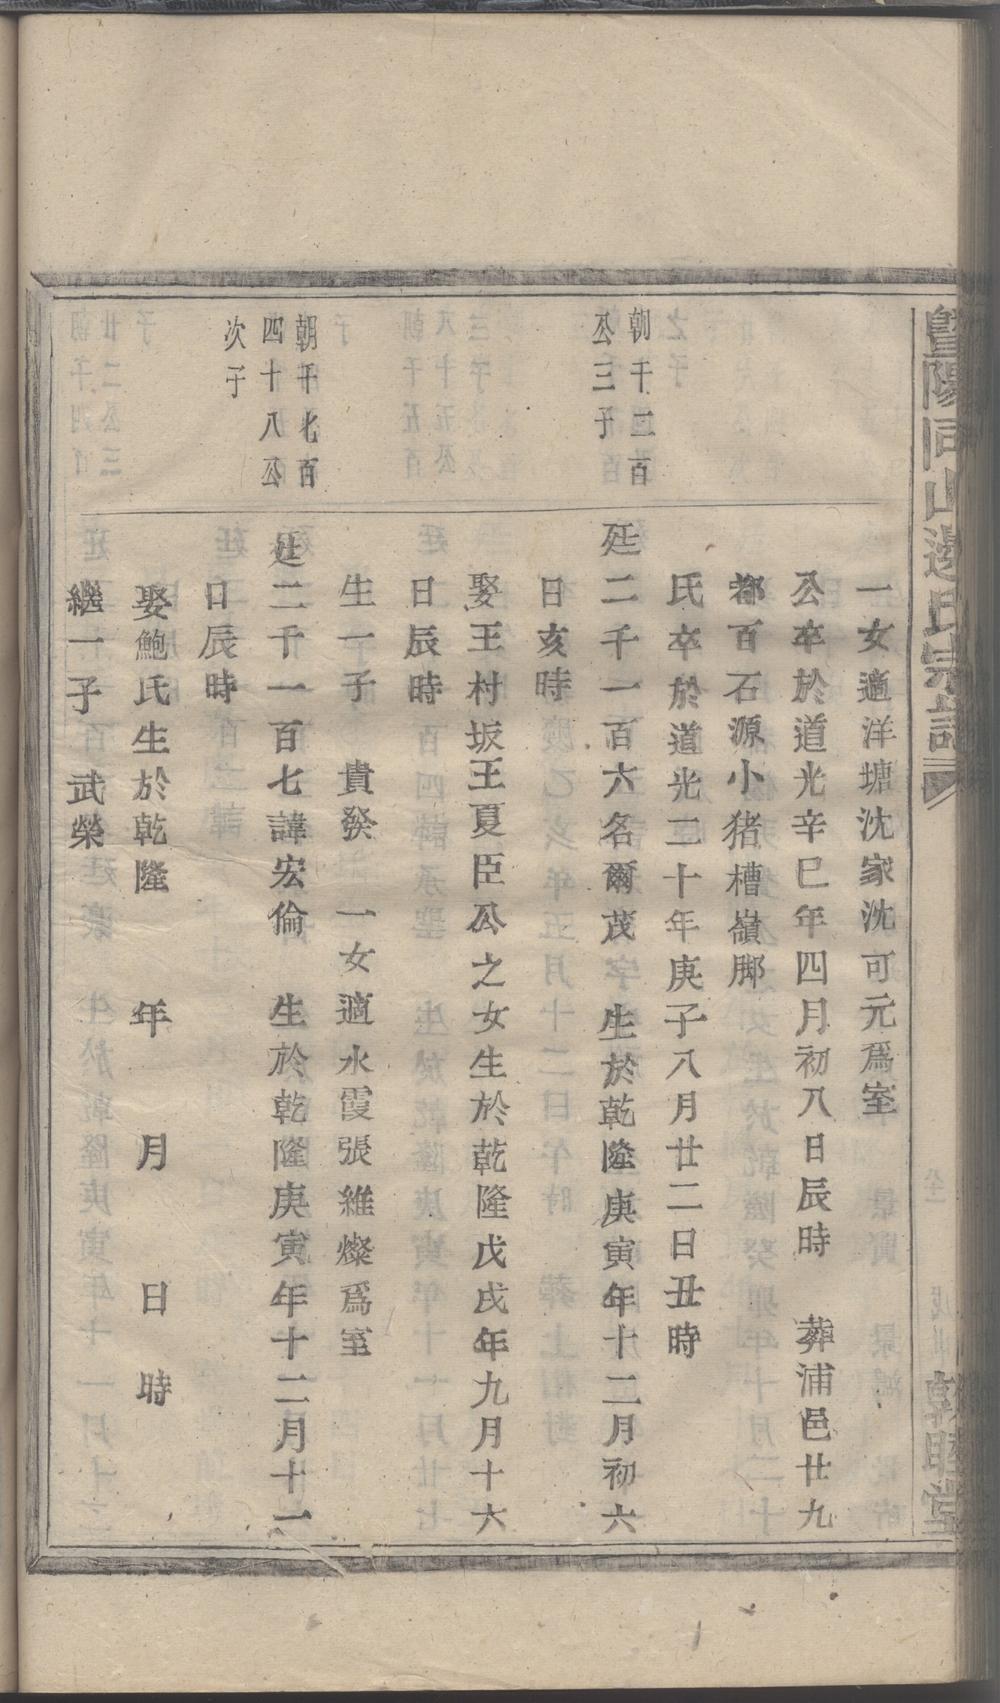 暨陽同山邊氏宗譜
敦睦堂
一女適洋塘沈家沈可元爲室
公卒於道光辛巳年四月初八日辰時 葬浦邑廿九
都百石源小猪槽嶺脚
氏卒於道光二十年庚子八月廿二日丑時
朝千二百
公三子
廷二千一百六名爾茂字 生於乾隆庚寅年十二月初六
日亥時
娶王村坂王夏臣公之女生於乾隆戊戌年九月十六
日辰時
生一子 貴發 一女適水霞張維燦爲室
朝千七百
四十八公
次子
廷二千一百七諱宏倫 生於乾隆庚寅年十二月十一
日辰時
娶鮑氏生於乾隆 年 月 日 時
繼一子 武榮